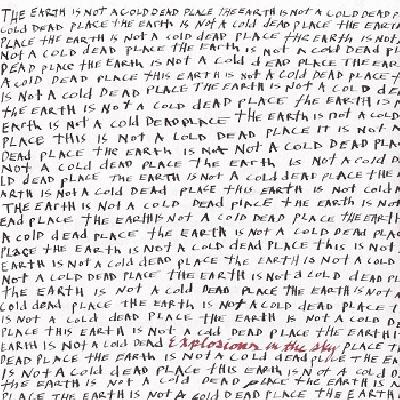 THE EARTH IS NOT A COLD DEAD PLACE THE EARTH IS NOT A COLD DEAD P
COLD DEAD PLACE THE EARTH IS NOT A COLD DEAD PLACE THE EARTH
PLACE THE EARTH IS NOT A COLD DEAD PLACE THE EARTH IS NOT A
NOT A COLD DEAD PLACE THE EARTH IS NOT A COLD DEAD PL
DEAD PLACE THE EARTH IS NOT A COLD DEAD PLACE THE EAR
A COLD DEAD PLACE THIS EARTH IS NOT A COLD DEAD PLACE T
IS NOT A COLD DEAD PLACE THE EARTH IS NOT A COLD DE
THE EARTH IS NOT A COLD DEAD PLACE THE EARTH IS N
EARTH IS NOT A COLD DEAD PLACE THE EARTH IS NOT A COLD
PLACE THIS IS NOT A COLD DEAD PLACE IT IS NOT A
DEAD PLACE THE EARTH IS NOT A COLD DEAD PLA
NOT A COLD DEAD PLACE THE EARTH IS NOT A COLD D
LD DEAD PLACE THE EARTH IS NOT A COLD DEAD PLACE THE
ARTH IS NOT A COLD DEAD PLACE THIS EARTH IS NOT COLD
THE EARTH IS NOT A COLD DEAD PLACE THE EARTH IS NOT A
EAD PLACE THE EARTH IS NOT A COLD DEAD PLACE THE EARTH
A COLD DEAD PLACE THE EARTH IS NOT A COLD DEAD PLAC
PLACE THE EARTH IS NOT A COLD DEAD PLACE THIS IS NOT
EARTH IS NOT A COLD DEAD PLACE THE EARTH IS NOT A COLD
NOT A COLD DEAD PLACE THE EARTH IS NOT A COLD DEAD PL
THE EARTH IS NOT A COLD DEAD PLACE THE EARTH IS NOT A
COLD DEAD PLACE THE EARTH IS NOT A COLD DEAD PLACE T
IS NOT A COLD DEAD PLACE THE EARTH IS NOT A COLD D
PLACE THIS EARTH IS NOT A COLD DEAD PLACE THE EARTH I
EARTH IS NOT A COLD DEAD Explosions in the sky PLACE T
DEAD PLACE THE EARTH IS NOT A COLD DEAD PLACE THE EA
IS NOT A COLD DEAD PLACE THIS EARTH IS NOT A COLD D
THE EARTH IS NOT A COLD DEAD PLACE THE EARTH IS NOT
PLACE THE EARTH IS NOT A COLD DEAD PLACE THE EARTH IS NOT A